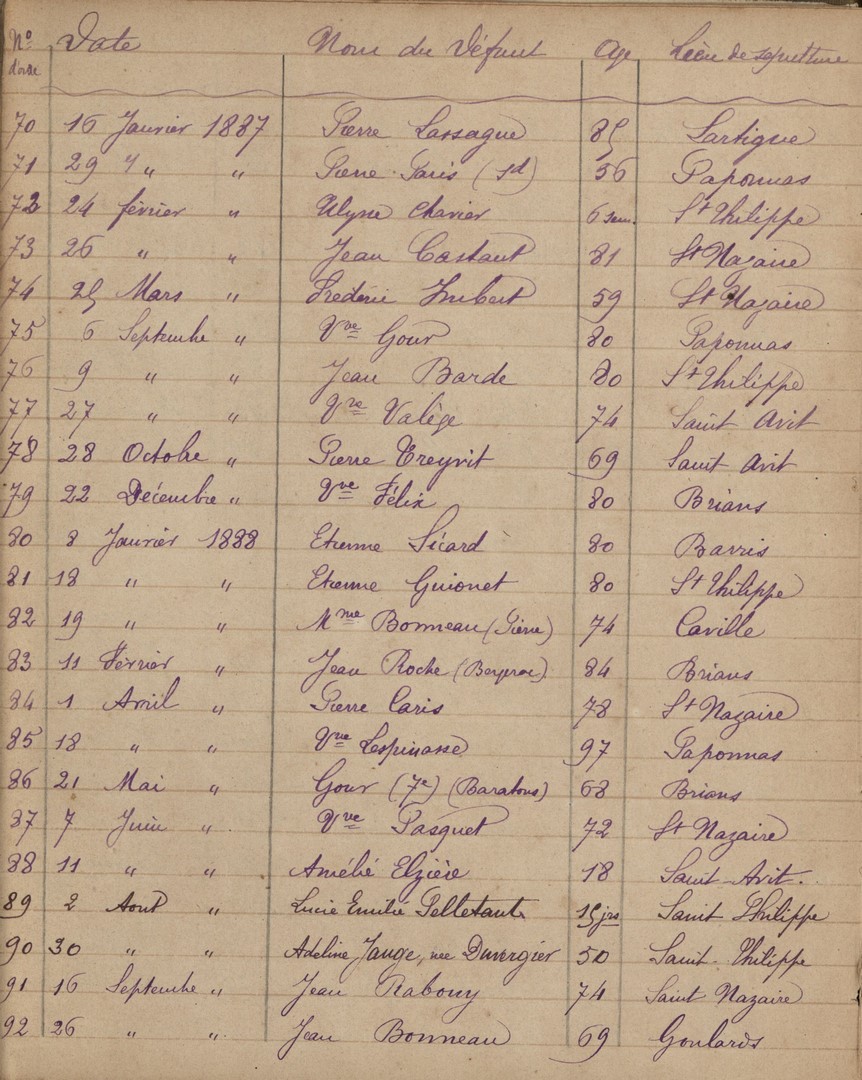 No d'ordre Date Nom du Défunt Age Lieu de sépulture
70 16 Janvier 1887 Pierre Lassague 85 Lartigue
71 29 " " Pierre Paris (Sd) 56 Paponnas
72 24 février " Ulysse Chavier 6 sem. St Philippe
73 26 " " Jean Castaut 81 St Nazaire
74 25 Mars " Frédéric Imbert 59 St Nazaire
75 6 Septembre " Vve Gour 80 Paponnas
76 9 " " Jean Barde 80 St Philippe
77 27 " " Vve Valège 74 Saint Avit
78 28 Octobre " Pierre Treyvit 69 Saint Avit
79 22 Décembre " Vve Félix 80 Brians
80 8 Janvier 1888 Etienne Sicard 80 Barris
81 18 " " Etienne Guionet 80 St Philippe
82 19 " " Mme Bonneau (Pierre) 74 Caville
83 11 Février " Jean Roche (Bergerac) 84 Brians
84 1 Avril " Pierre Caris 78 St Nazaire
85 18 " " Vve Lespinasse 97 Paponnas
86 21 Mai " Gour (7e) (Baratous) 68 Brians
87 7 Juin " Vve Pasquet 72 St Nazaire
88 11 " " Amélie Elzière 18 Saint-Avit.
89 2 Aout " Lucie Emilie Pelletant 15 jrs Saint Philippe
90 30 " " Adeline Jauge, née Duvergier 50 Saint-Philippe
91 16 Septembre " Jean Rabouy 74 Saint Nazaire
92 26 " " Jean Bonneau 69 Goulards